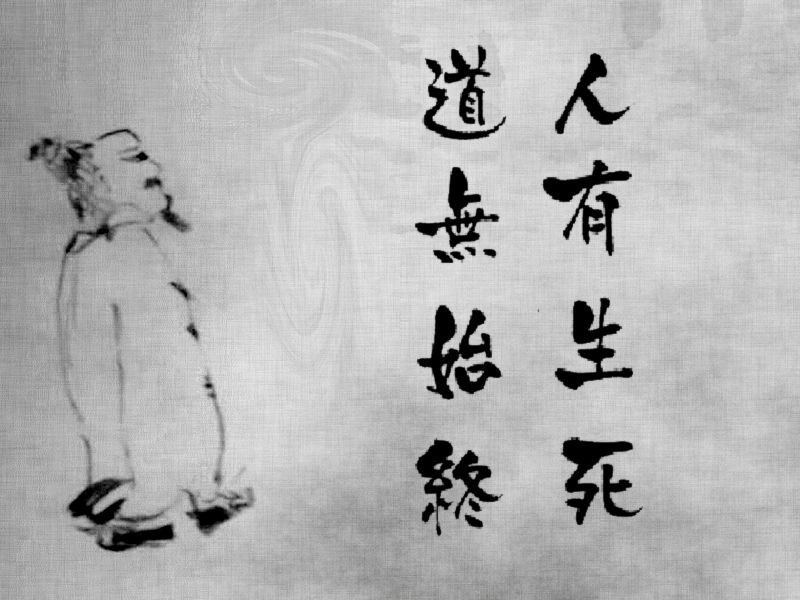 人有生死
道無始終